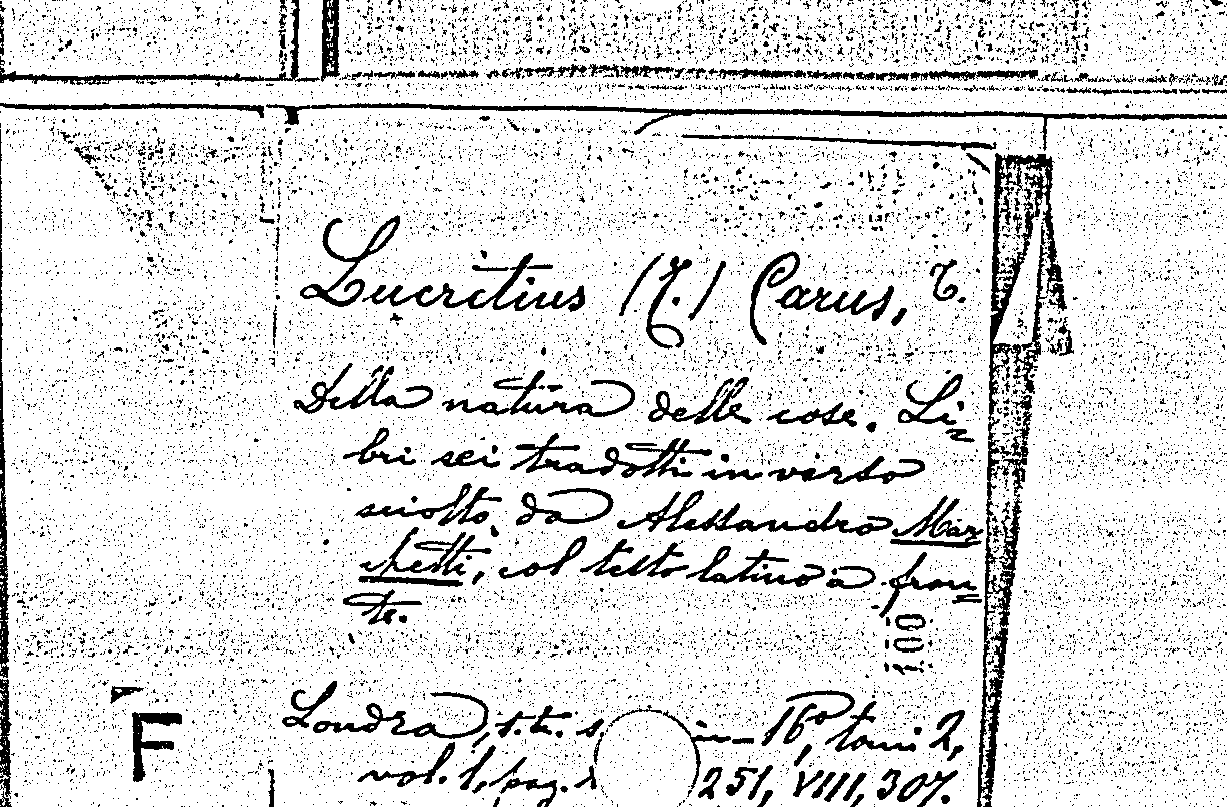 Lucretius (T.) Carus, T.
Della natura delle cose. Li=
bri sei tradotti in verso
sciolto da Alessandro Mar
chetti, col testo latino a fron=
te.
100
F
Londra, s. t. s. in-16°, tomi 2,
vol. 1, pag. 251, VIII, 307.